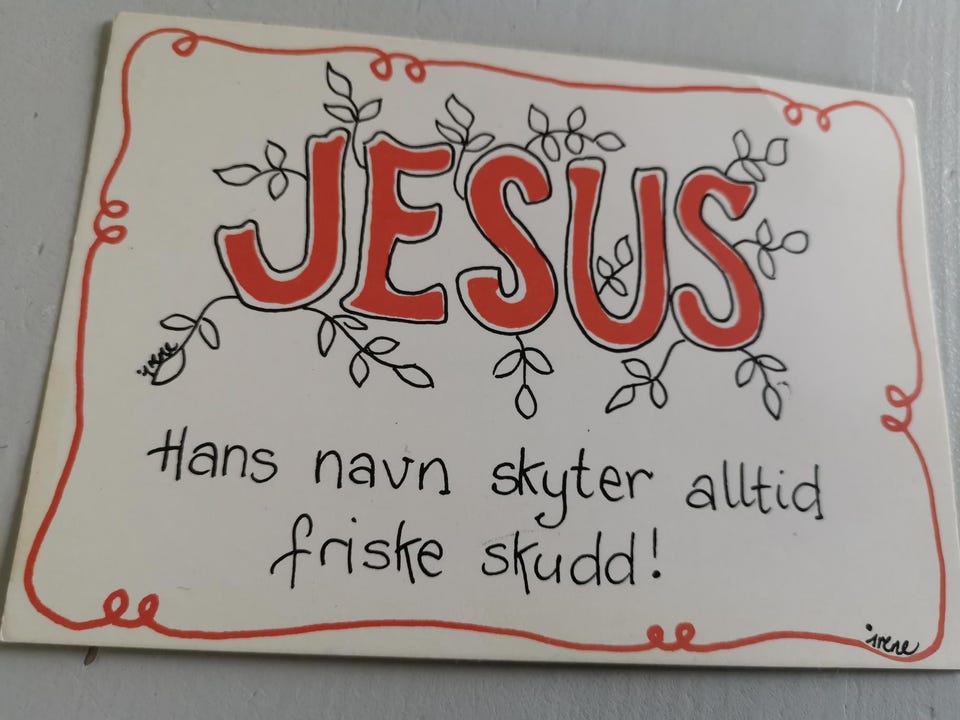 JESUS
irene
Hans navn skyter alltid
friske skudd!
irene